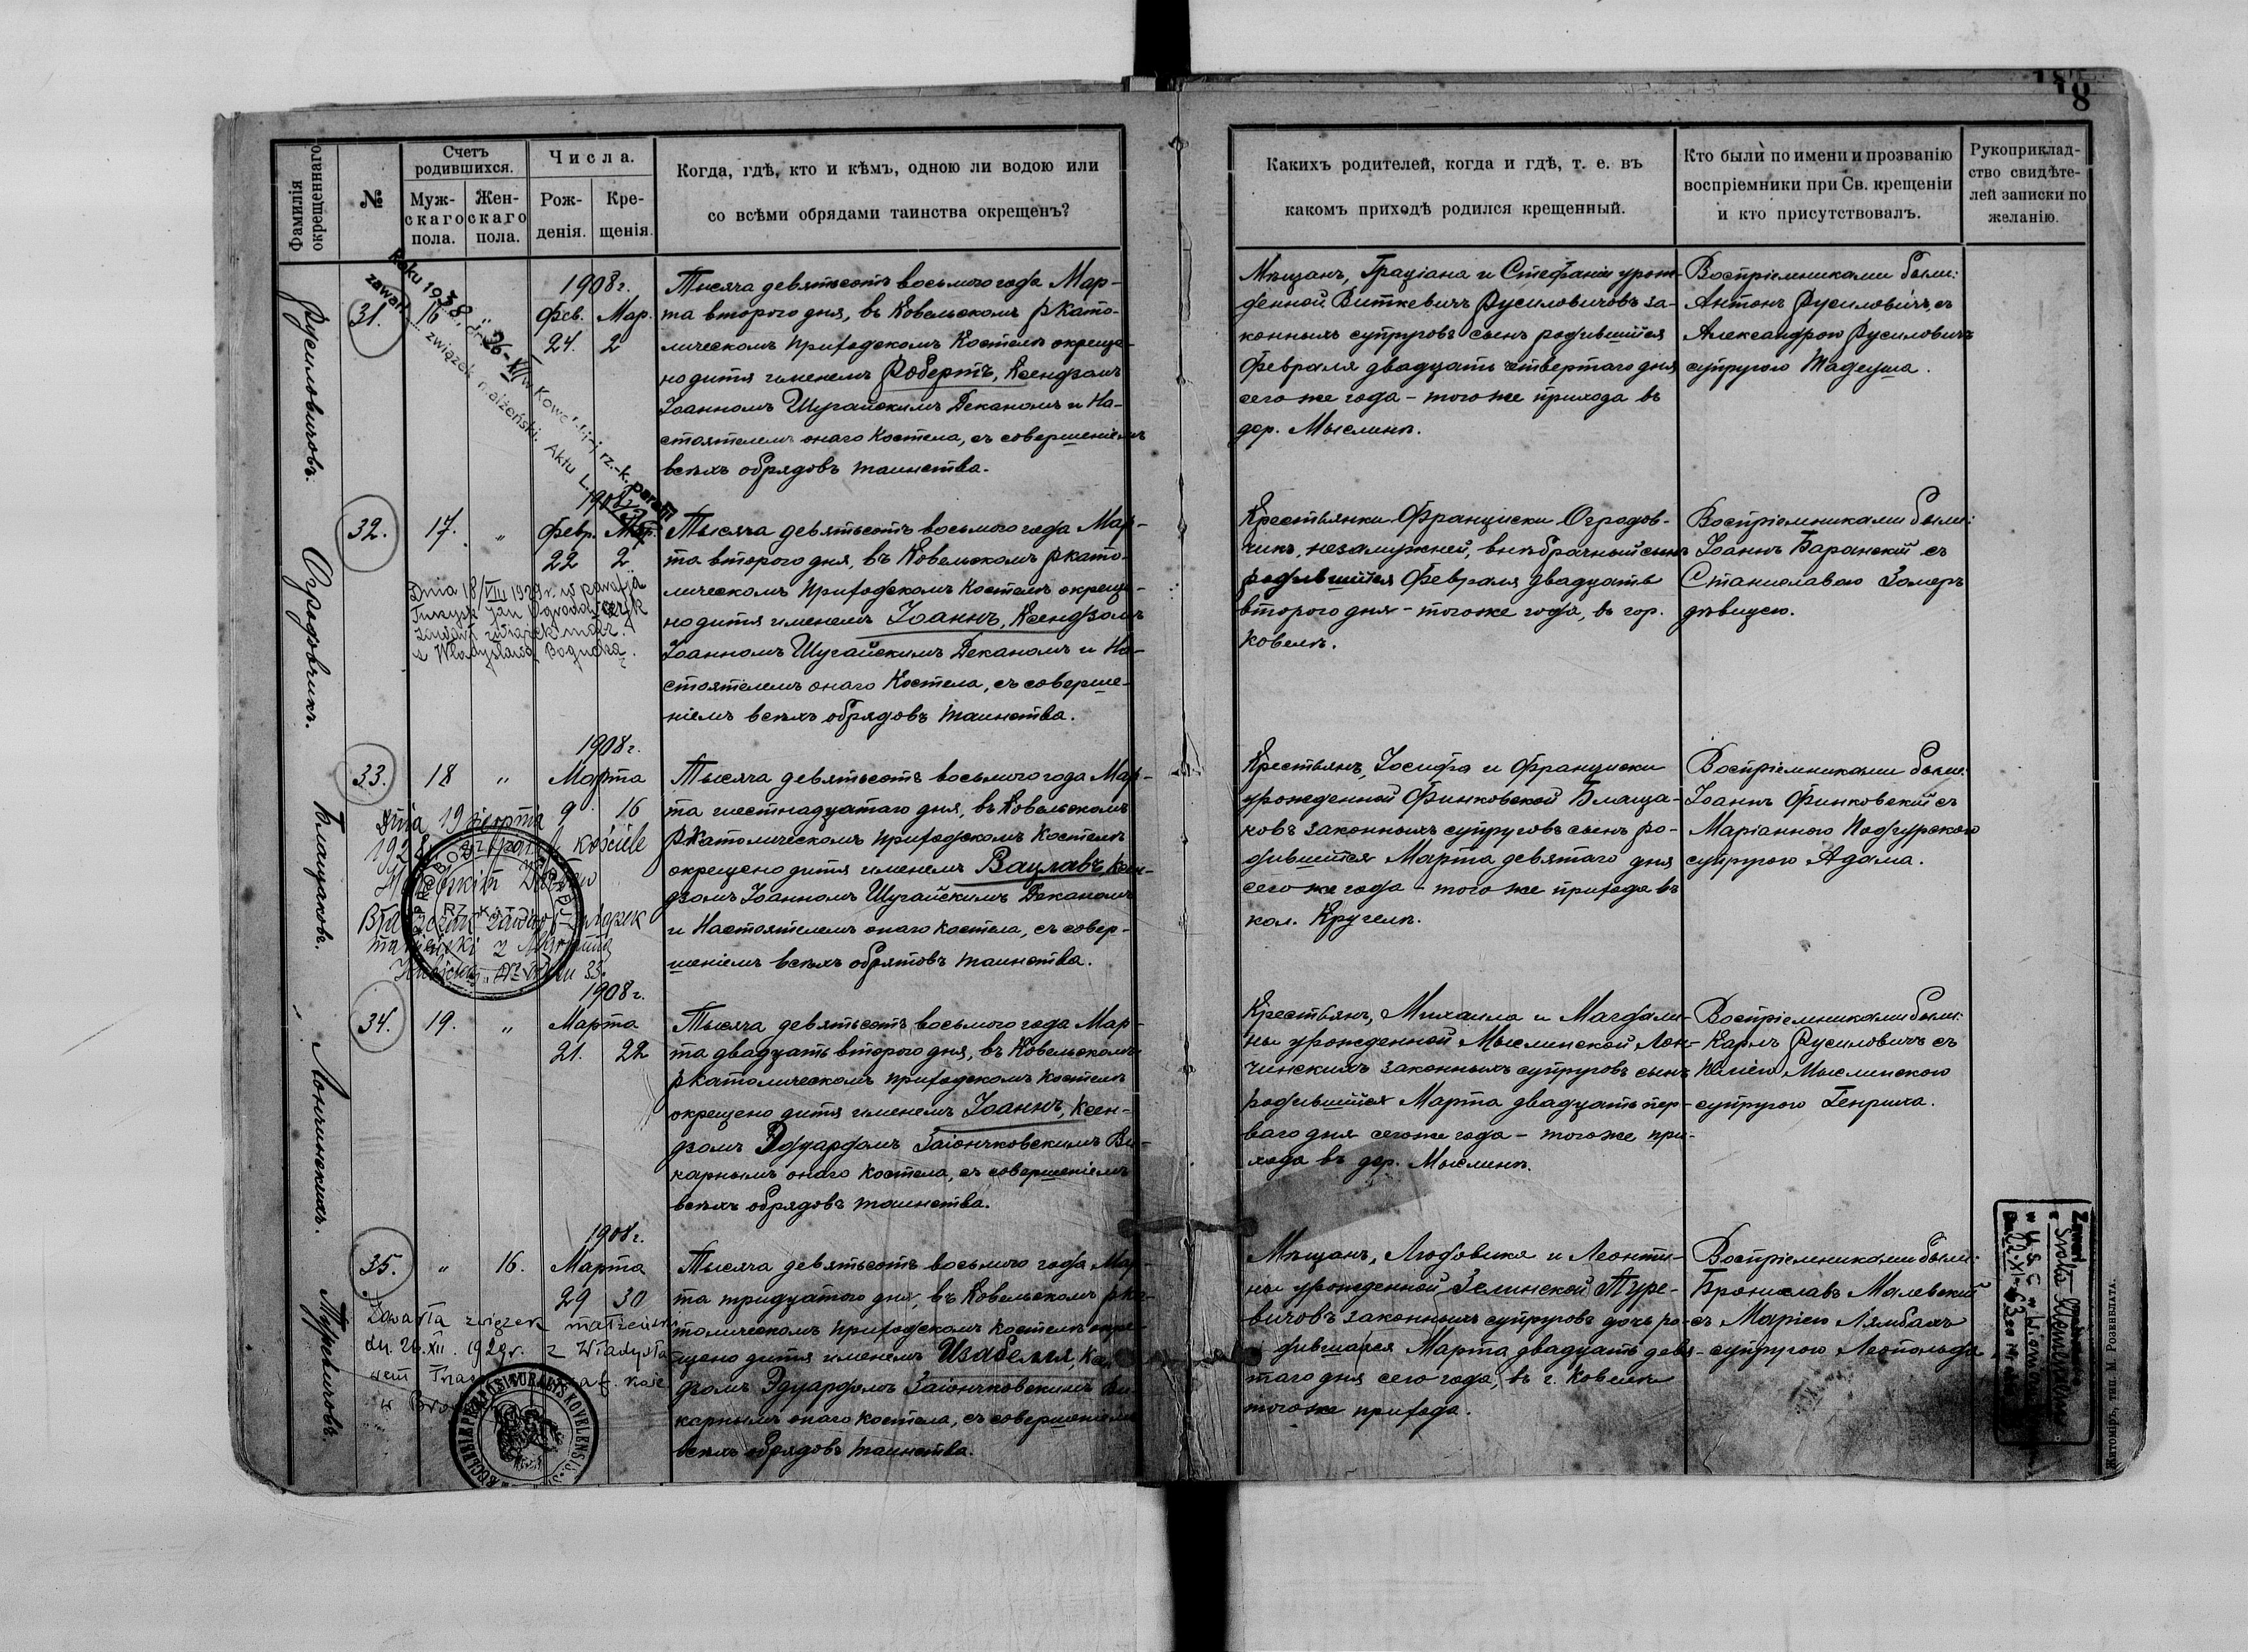 18
Фамилія
окрещеннаго.
№
Счетъ
родившихся.
Муж-
скаго
пола.
Жен-
скаго
пола.
Числа.
Рож-
денія.
Кре-
щенія.
Когда, гдѣ, кто и кѣмъ, одною ли водою или
со всѣми обрядами таинства окрещенъ?
Какихъ родителей, когда и гдѣ, т. е. въ
какомъ приходѣ родился крещенный.
Кто были по имени и прозванію
воспріемники при Св. крещеніи
и кто присутствовалъ.
Рукоприклад-
ство свидѣте-
лей записки по
желанію.
Русиловичовъ.
31.
16
1908 г.
Фев. Мар.
24. 2
roku 1938, dnia 26-XI w Kowelskiej rz.-k. parafii
zawarł związek małżeński. Aktu L.
Тысяча девятьсотъ восьмого года Мар-
та второго дня, въ Ковельскомъ Ркато-
лическомъ приходскомъ Костелѣ окреще-
но дитя именемъ Робертъ, Ксендзомъ
Іоанномъ Шугайскимъ Деканомъ и На-
стоятелемъ онаго Костела, съ совершеніемъ
всѣхъ обрядовъ таинства.
Мѣщанъ, Граціана и Стефаніи урож-
денной Виткевичъ Русиловичовъ за-
конныхъ супруговъ сынъ родившійся
Февраля двадцать четвертаго дня
сего же года – того же прихода въ
дер. Мыслинѣ.
Воспріемниками были:
Антонъ Русиловичъ съ
Александрою Русиловичъ
супругою Тадеуша.
Огродовчикъ.
32.
17. "
1908 г.
Февр. Мар.
22 2
Dnia 18/VIII 1929 r. w parafji
Turzysk Jan Ogrodowczyk
zawarł związek małż.
z Władysławą Bogucką.
Тысяча девятьсотъ восьмого года Мар-
та второго дня, въ Ковельскомъ Ркато-
лическомъ приходскомъ Костелѣ окреще-
но дитя именемъ Іоаннъ, Ксендзомъ
Іоанномъ Шугайскимъ Деканомъ и На-
стоятелемъ онаго Костела, съ соверше-
ніемъ всѣхъ обрядовъ таинства.
Крестьянки Франциски Огродов-
чикъ, незамужней, внѣбрачный сынъ
родившійся Февраля двадцать
второго дня – того же года, въ гор.
Ковелѣ.
Воспріемниками были:
Іоаннъ Баранскій съ
Станиславою Замеръ
дѣвицею.
Блащаковъ.
33.
18 "
1908 г.
Марта
9 16
Dnia 19 sierpnia
1928 kościele
zawarł związek
małżeński z Marjanną
Тысяча девятьсотъ восьмого года Мар-
та шестнадцатаго дня, въ Ковельскомъ
РКатолическомъ приходскомъ Костелѣ
окрещено дитя именемъ Вацлавъ, Ксен-
дзомъ Іоанномъ Шугайскимъ Деканомъ
и Настоятелемъ онаго Костела, съ совер-
шеніемъ всѣхъ обрятовъ таинства.
Крестьянъ, Іосифа и Франциски
урожденной Финковской Блаща-
ковъ законныхъ супруговъ сынъ ро-
дившійся Марта девятаго дня
сего же года – того же прихода въ
кол. Кругелъ.
Воспріемниками были:
Іоаннъ Финковскій съ
Маріанною Подгурскою
супругою Адама.
Лончинскихъ.
34.
19. "
1908 г.
Марта
21. 22
Тысяча девятьсотъ восьмого года Мар-
та двадцать второго дня, въ Ковельскомъ
рКатолическомъ приходскомъ Костелѣ
окрещено дитя именемъ Іоаннъ, Ксен-
дзомъ Эдуардомъ Заіончковскимъ Ви-
карнымъ онаго Костела, съ совершеніемъ
всѣхъ обрядовъ таинства.
Крестьянъ, Михаила и Магдали-
ны урожденной Мыслинской Лон-
чинскихъ законныхъ супруговъ сынъ
родившійся Марта двадцать пер-
ваго дня сего же года – того же при-
хода въ дер. Мыслинѣ.
Воспріемниками были:
Карлъ Русиловичъ съ
Юліею Мыслинскою
супругою Генриха.
Туревичовъ.
35.
" 16.
1908 г.
Марта
29 30
Zawarła związek małżeński
dn. 26.XII. 1929 r. z Władysła-
wem
ECCLESIAE PRAEPOSITURALIS KOVELENSIS
Тысяча девятьсотъ восьмого года Мар-
та тридцатаго дня, въ Ковельскомъ рКа-
толическомъ приходскомъ Костелѣ окре-
щено дитя именемъ Изабелла, Ксен-
дзомъ Эдуардомъ Заіончковскимъ Ви-
карнымъ онаго Костела, съ совершеніемъ
всѣхъ обрядовъ таинства.
Мѣщанъ, Людовика и Леонти-
ны урожденной Зелинской Туре-
вичовъ законныхъ супруговъ дочь ро-
дившаяся Марта двадцать девя-
таго дня сего года, въ г. Ковелѣ
того же прихода.
Воспріемниками были:
Брониславъ Малевскій
съ Маріею Лямбахъ
супругою Леопольда.
Житоміръ, тип. М. Розенблата.